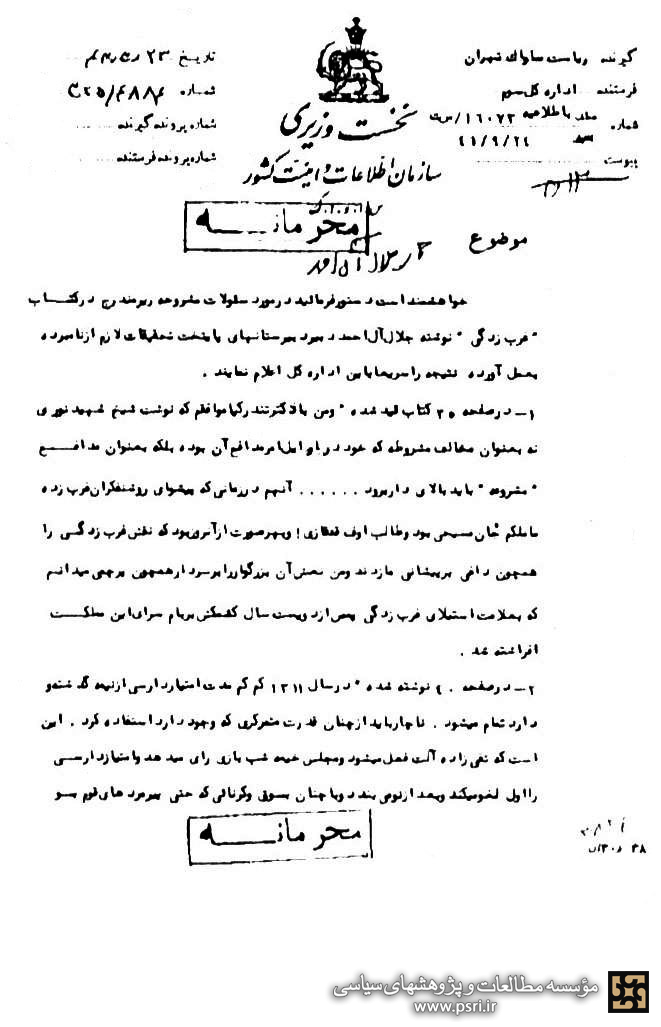 گیرنده ریاست ساواک تهران
فرستنده اداره کل سوم
شماره عطف باطلاعیه ۱۶۰۷۳/س ت
۴۱/۹/۲۴
پیوست
نخست وزیری
سازمان اطلاعات و امنیت کشور
س.ا.و.ا.ک
تاریخ
شماره
شماره پرونده گیرنده
شماره پرونده فرستنده
محرمانه
موضوع
جلال آل احمد
خواهشمند است دستور فرمائید در مورد سئوالات مشروحه زیر مندرج در کتاب
" غرب زدگی " نوشته جلال آل احمد دبیر دبیرستانهای پایتخت تحقیقات لازم از نامبرده
بعمل آورده نتیجه را سریعا باین اداره کل اعلام نمایند .
۱- در صفحه ۳۵ کتاب قید شده " ومن با دکتر تندرکیا موافقم که نوشت شیخ شهید نوری
نه بعنوان مخالف مشروطه که خود در اوایل امر مدافع آن بود ه بلکه بعنوان مدافع
" مشروعه " باید بالای دار برود ...... آنهم در زمانی که پیشوای روشنفکران غرب زده
ما ملکم خان مسیحی بود و طالب اوف قفقازی ! و بهر صورت از آنروز بود که نقش غرب زدگی را
همچون داغی بر پیشانی ما زدند ومن نعش آن بزرگوار را بر سر دار همچون پرچمی میدانم
که بعلامت استیلای غرب زدگی پس از دویست سال کشمکش بر بام سرای این مملکت
افراشته شد .
۲- در صفحه ۴۰ نوشته شده " در سال ۱۳۱۱ کم کم مدت امتیاز دارسی از نیمه گذشته و
دارد تمام میشود . ناچار باید از چنان قدرت متمرکزی که وجود دارد استفاده کرد . این
است که تقی زاده آلت فعل میشود ومجلس خیمه شب بازی رای میدهد وامتیاز دارسی
را اول لغو میکند وبعد از نو می بندد وبا چنان بسوق وکرنائی که حتی پیر مرد های قوم بو
محرمانه
مؤسسه مطالعات و پژوهشهای سیاسی
www.psri.ir